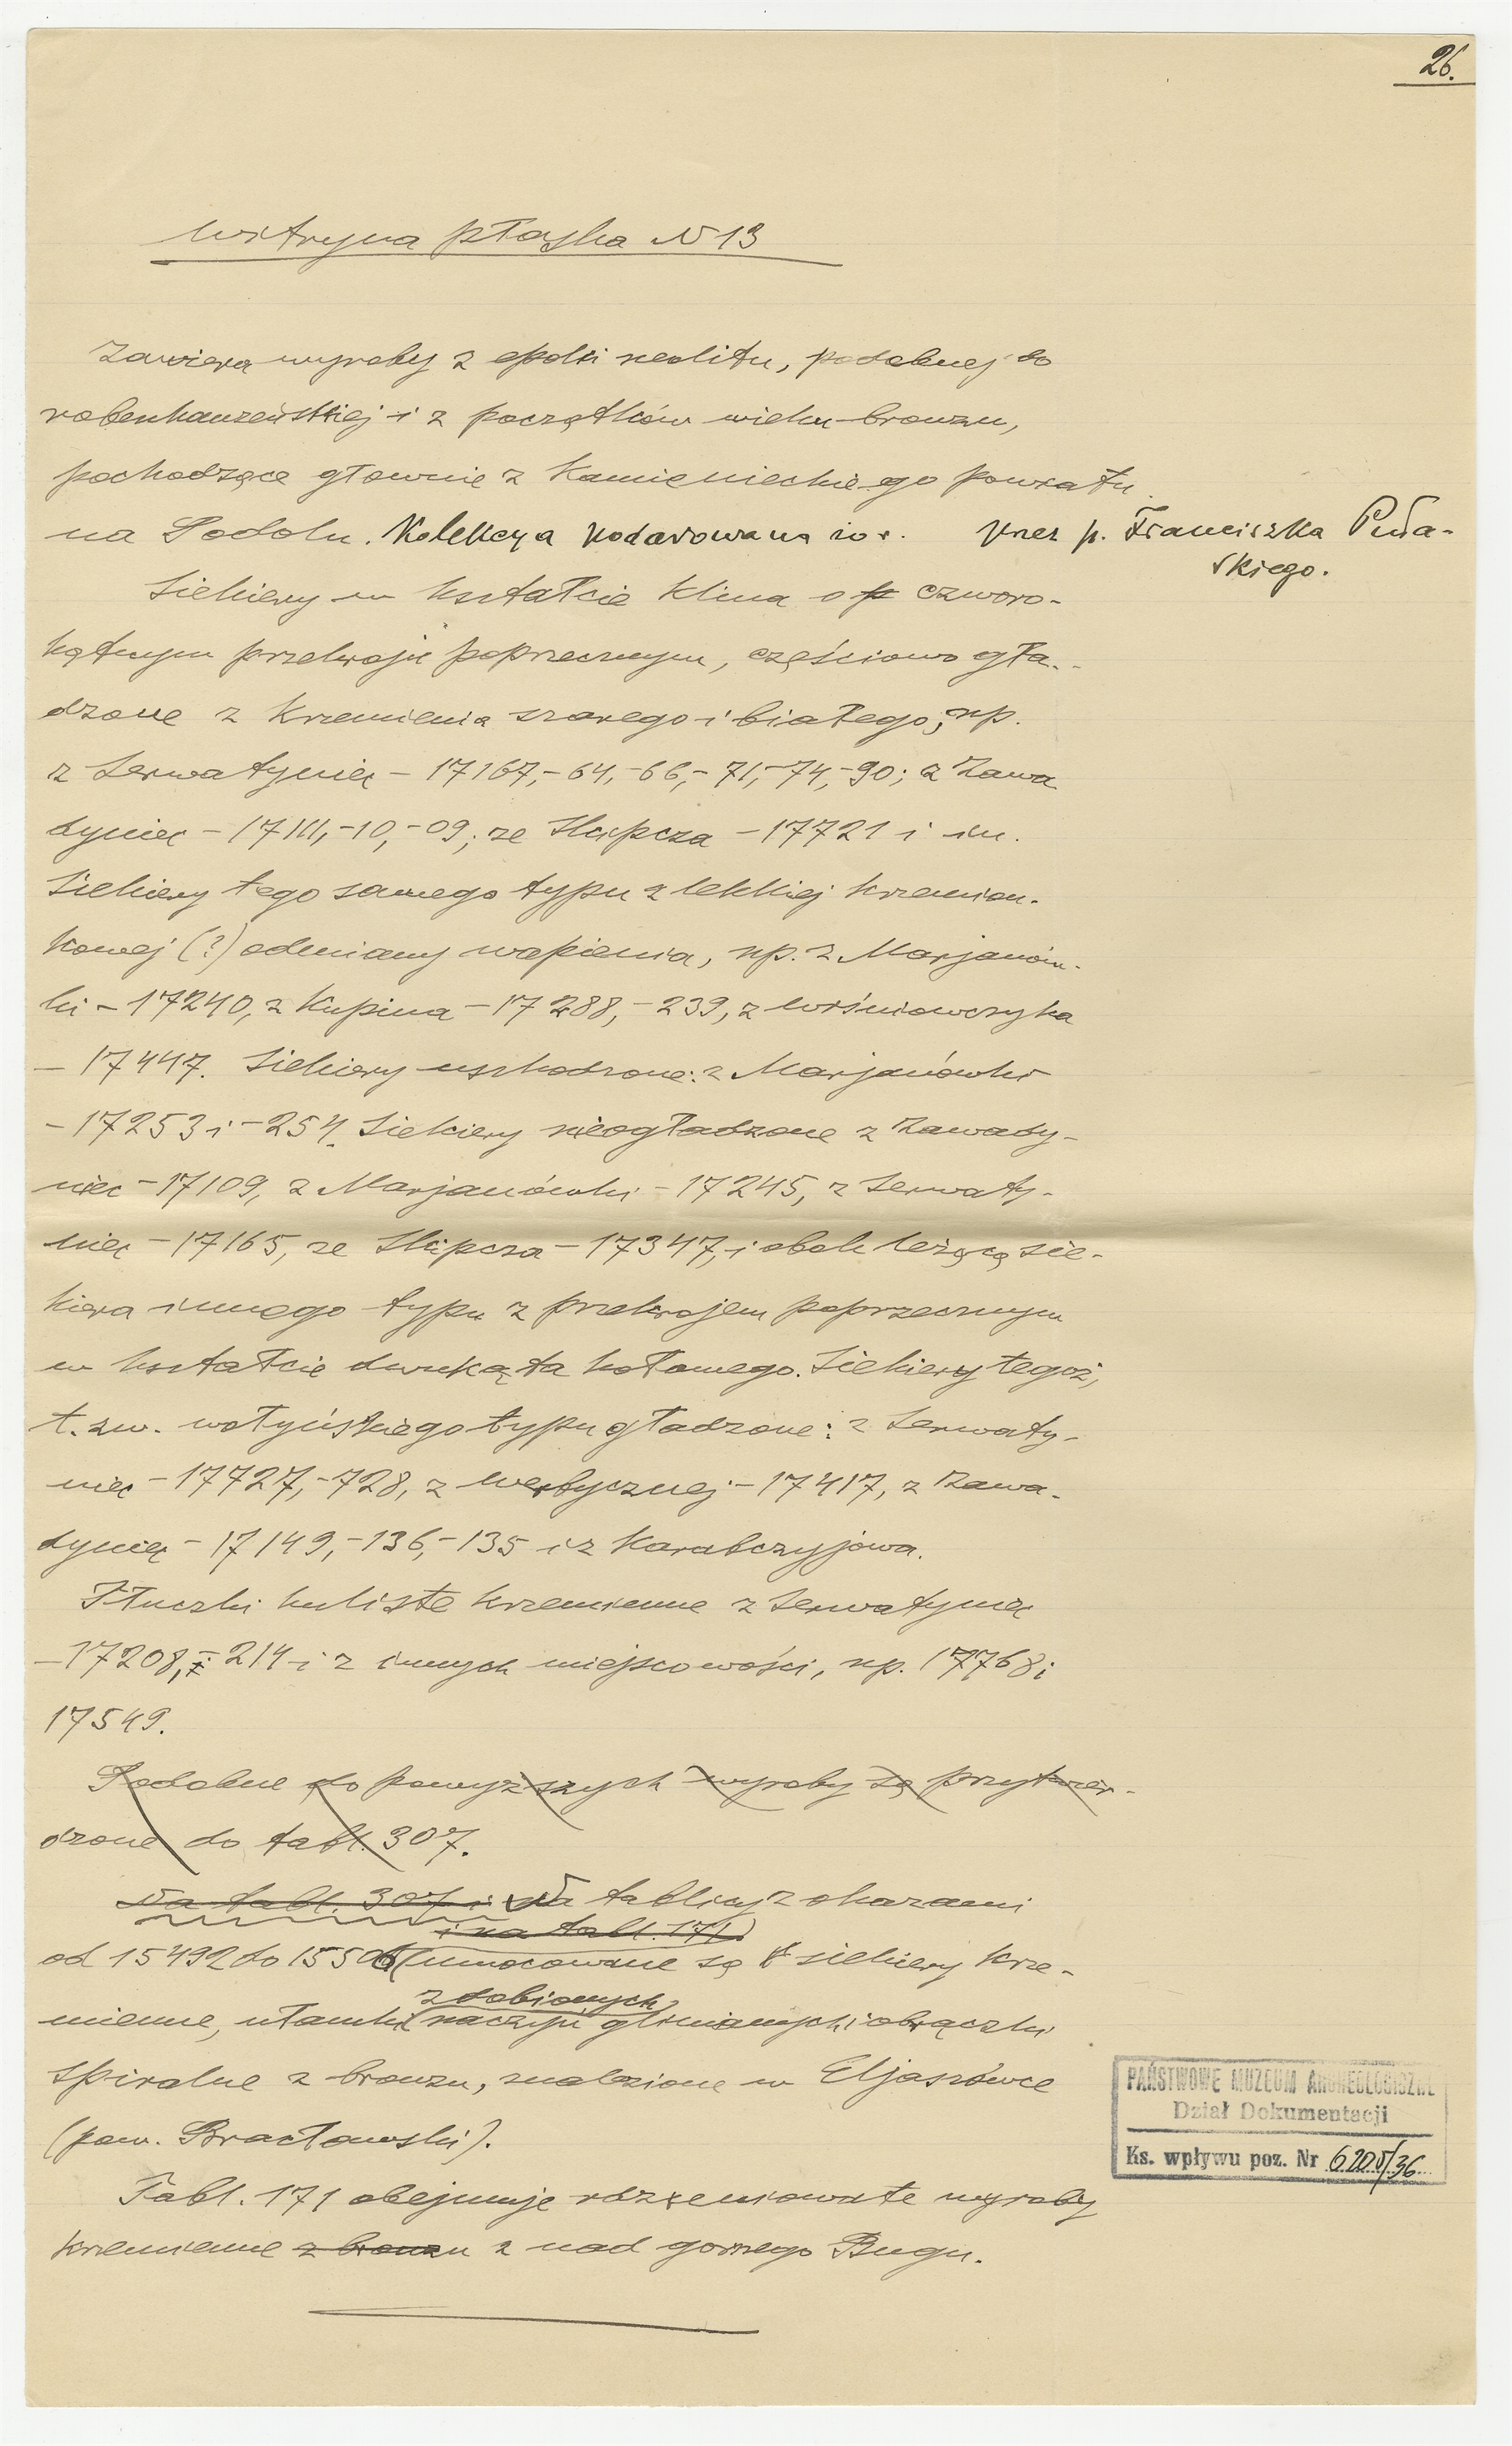 26.
Witryna płaska N 13
Zawiera wyroby z epoki neolitu, podobnej do
robenhauzeńskiej i z początków wieku bronzu,
pochodzące głownie z Kamienieckiego powiatu
na Podolu. Kolekcya podarowana ro r. przez p. Franciszka Puła-
skiego.
Siekiery w kształcie klina o p czworo-
kątnym przekroju poprzecznym, częściowo gła-
dzone z krzemienia szarego i białego, np.
z Serwatyniec - 17167,-64,-66,-71,-74,-90; z Zawa
dyniec - 17111,-10,-09; ze Skipcza - 17721 i in.
Siekiery tego samego typu z lekkiej krzemion-
kowej (?) odmiany wapienia, np. z Marjanów-
ki - 17240, z Kupina - 17288,-239, z Wiśniowczyka
- 17447. Siekiery uszkodzone: z Marjanówki
- 17253 i -254. Siekiery nieogładzone z Zawady-
niec - 17109, z Marjanówki - 17245, z Serwaty-
niec - 17165, ze Skipcza - 17347, i obok leżącą sie-
kiera innego typu z przekrojem poprzecznym
w kształcie dwukąta kołowego. Siekiery tegoż,
t. zw. wołyńskiego typu gładzone: z Serwaty-
niec - 17727,-728, z Werbycznej - 17417, z Zawa-
dyniec - 17149,-136,-135 i z Karabczyjowa.
Tłuczki kuliste krzemienne z Serwatyniec
- 17208, - 214 i z innych miejscowości, np. 17768 i
17549.
Podobne do powyższych wyroby są przytwier-
dzone do tabl. 307.
Na tabl. 307 i Na tablicy z okazami
i na tabl. 171)
od 15492 do 15506 (umocowane są siekiery krze-
zdobionych
mienne, ułamki naczyń glinianych i obrączki
spiralne z bronzu, znalezione w Eljaszówce
(pow. Bracławski).
Tabl. 171 obejmuje rdzeniowate wyroby
krzemienne z bronzu z nad gornego Bugu.
PAŃSTWOWE MUZEUM ARCHEOLOGICZNE
Dział Dokumentacji
Ks. wpływu poz. Nr 6205/36